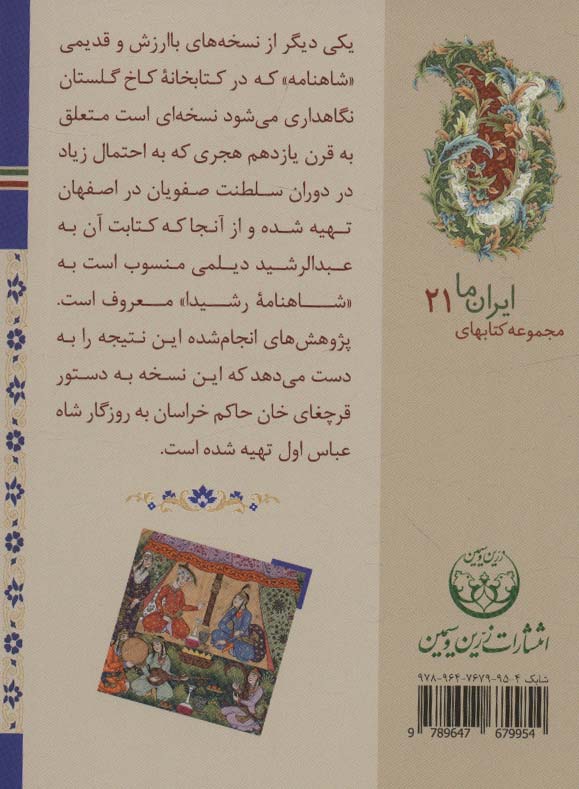 یکی دیگر از نسخه‌های باارزش و قدیمی
«شاهنامه» که در کتابخانهٔ کاخ گلستان
نگاهداری می‌شود نسخه‌ای است متعلق
به قرن یازدهم هجری که به احتمال زیاد
در دوران سلطنت صفویان در اصفهان
تهیه شده و از آنجا که کتابت آن به
عبدالرشید دیلمی منسوب است به
«شاهنامهٔ رشیدا» معروف است.
پژوهش‌های انجام‌شده این نتیجه را به
دست می‌دهد که این نسخه به دستور
قرچغای خان حاکم خراسان به روزگار شاه
عباس اول تهیه شده است.
ایران ما ۲۱
مجموعه کتابهای
زرین و سیمین
انتشارات زرین و سیمین
شابک ۴-۹۵-۷۶۷۹-۹۶۴-۹۷۸
9 789647 679954